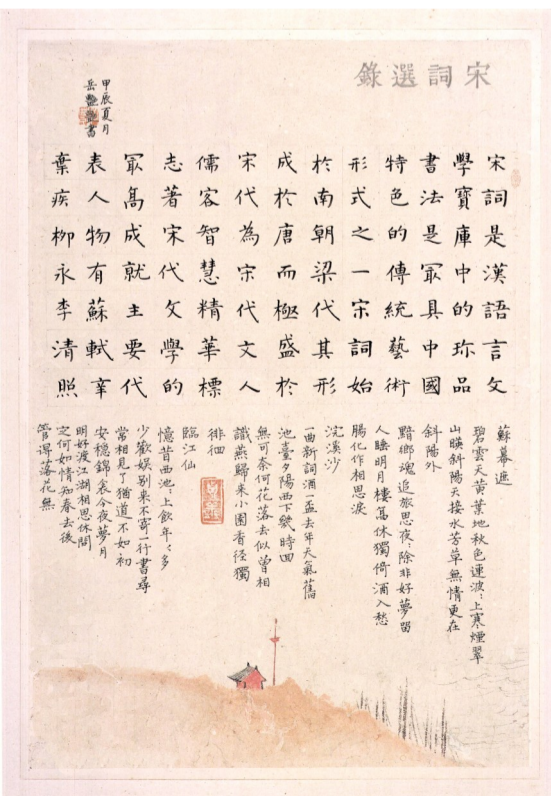 宋詞選錄
宋詞是漢語言文
學寶庫中的珎品
書法是冣具中國
特色的傳統藝術
形式之一宋詞始
於南朝梁代其形
成於唐而極盛於
宋代為宋代文人
儒客智慧精華標
志著宋代文學的
冣髙成就主要代
表人物有蘇軾辛
棄疾柳永李清照
蘇幕遮
碧雲天黃葉地秋色連波〻上寒煙翠
山暎斜陽天接水芳草無情更在
斜陽外
黯鄉魂追旅思夜〻除非好夢留
人睡明月樓髙休獨倚酒入愁
腸化作相思淚
浣溪沙
一曲新詞酒一盃去年天氣舊
池臺夕陽西下幾時回
無可奈何花落去似曾相
識燕歸来小園香径獨
徘徊
臨江仙
憶昔西池〻上飲年〻多
少歡娛别来不寄一行書尋
常相見了猶道不如初
安穩錦衾今夜夢月
明好渡江湖相思休問
定何如情知春去後
管得落花無
甲辰夏月
岳艷艷書